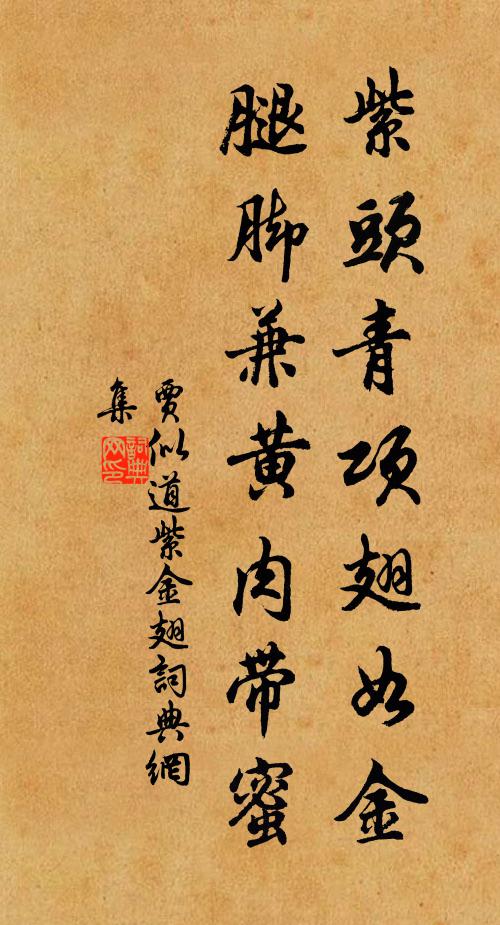 紫頭青項翅如金
腿脚兼黄肉带蜜
賈似道紫金翅詞典網
集
詞典
网印